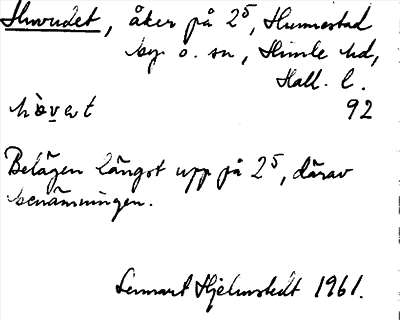 Huvudet, åker på 2⁵, Hunnestad
by o. sn, Himle hd,
Hall. l.
hò̤vet 92
Belägen längst upp på 2⁵, därav
benämningen.
Lennart Hjelmstedt 1961.